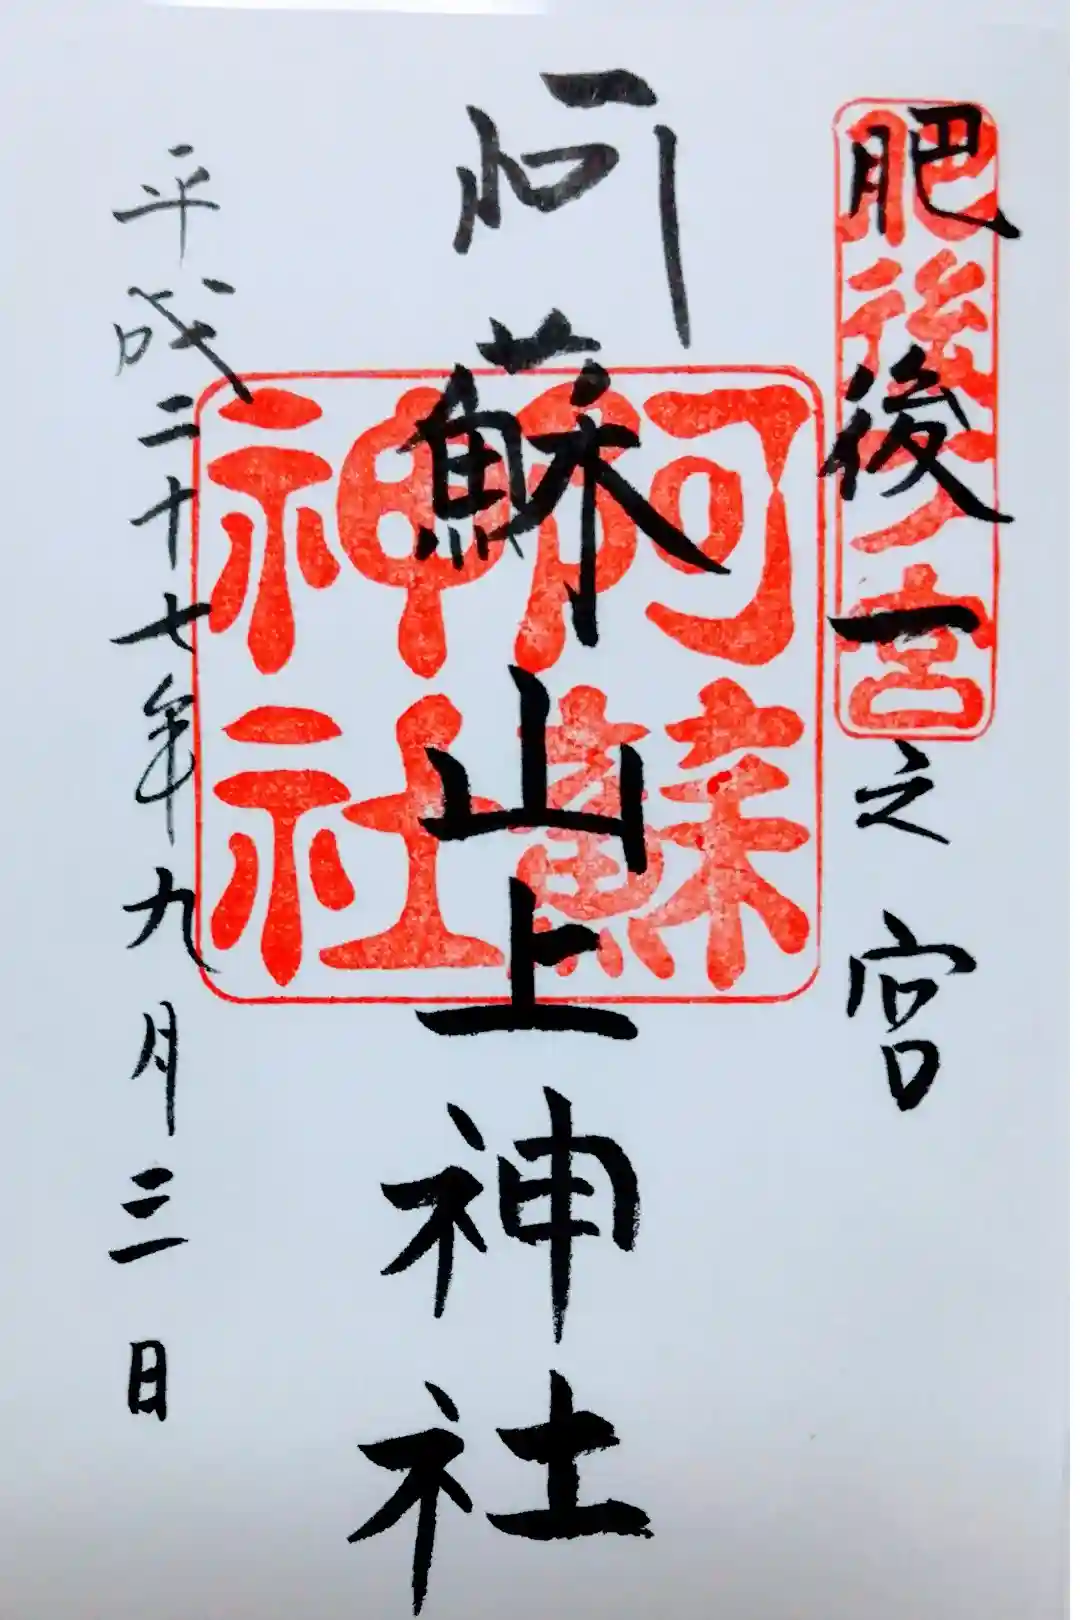 肥後一之宮
肥後一宮
阿蘇山上神社
阿蘇
神社
平成二十七年九月三日